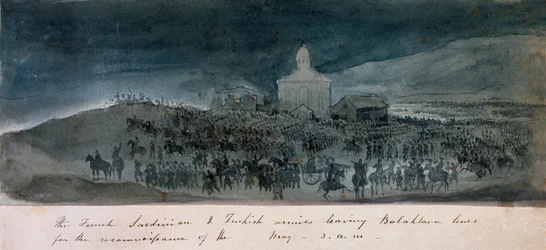 The French Sardinian & Turkish armies leaving Balaklava lines
for the reconnoissance of the May - 3. a.m -